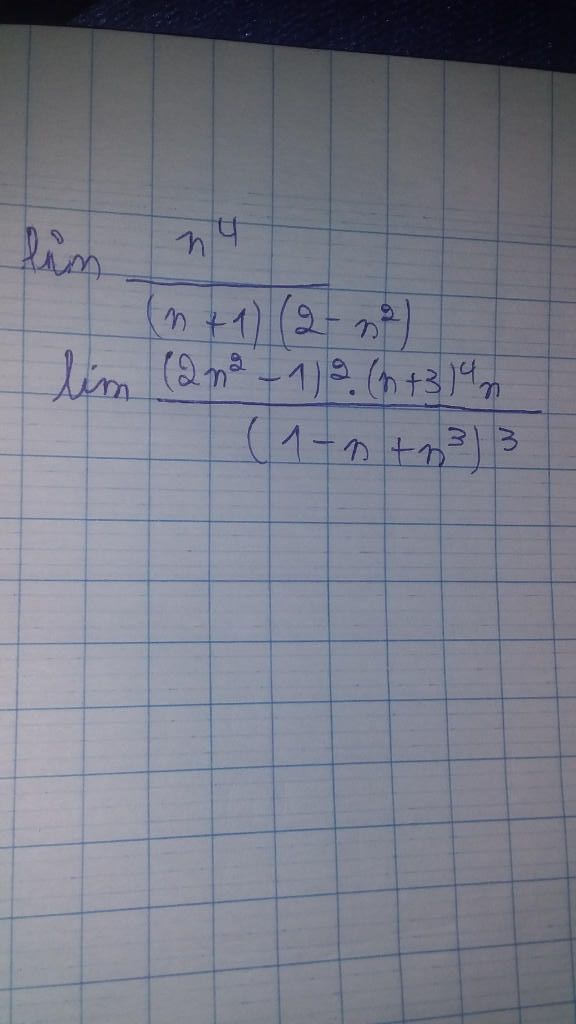 lim n⁴ / (n + 1)(2 - n²)
lim (2n² - 1)².(n+3)⁴n / (1 - n + n³)³